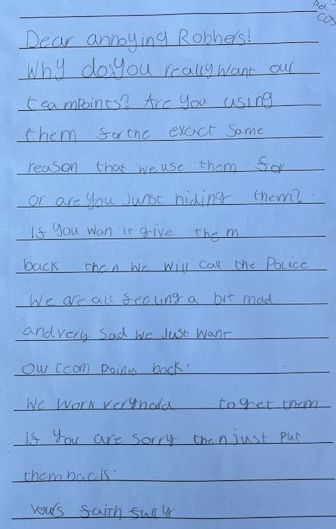 Dear annoying Robbers!
Why do you really want our
teampoints? Are you using
them for the exact same
reason that we use them for
or are you junst hiding them?
If you wan it give them
back then we will call the Police
We are all feeling a bit mad
and very sad we Just want
our team points back.
We work very hard to get them
If you are sorry then just put
them back.
yours faith fully